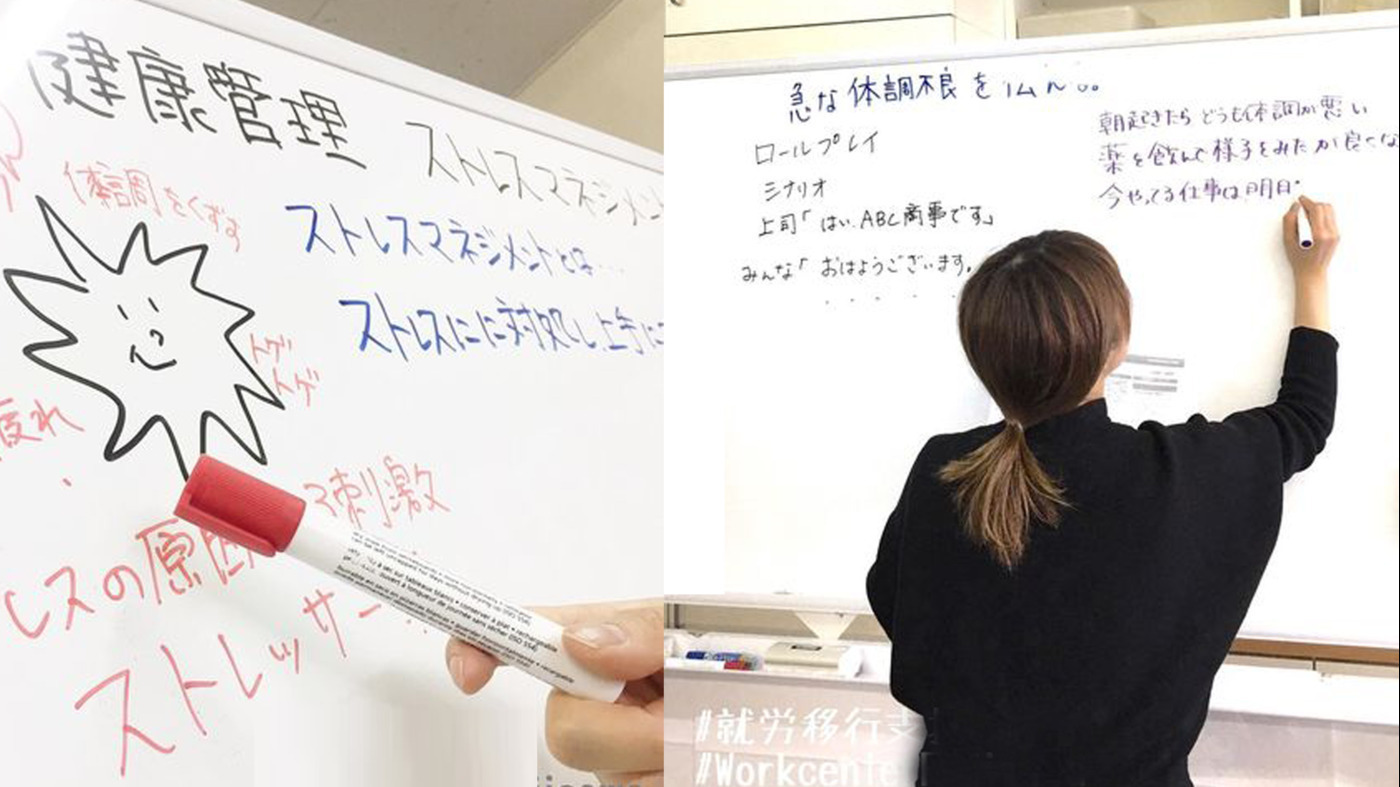 健康管理
ストレスマネジメント
体調をくずす
ストレスマネジメントとは…
ストレスにに対処し、上手に
トゲ
トゲ
疲れ
刺激
レスの原因
ストレッサー…
急な体調不良を
ロールプレイ
シナリオ
上司「はい、ABC商事です」
みんな「おはようございます。
朝起きたらどうも体調が悪い
薬を飲んで様子をみたが良くな
今やってる仕事は、明日
#就労移行支
#Workcente